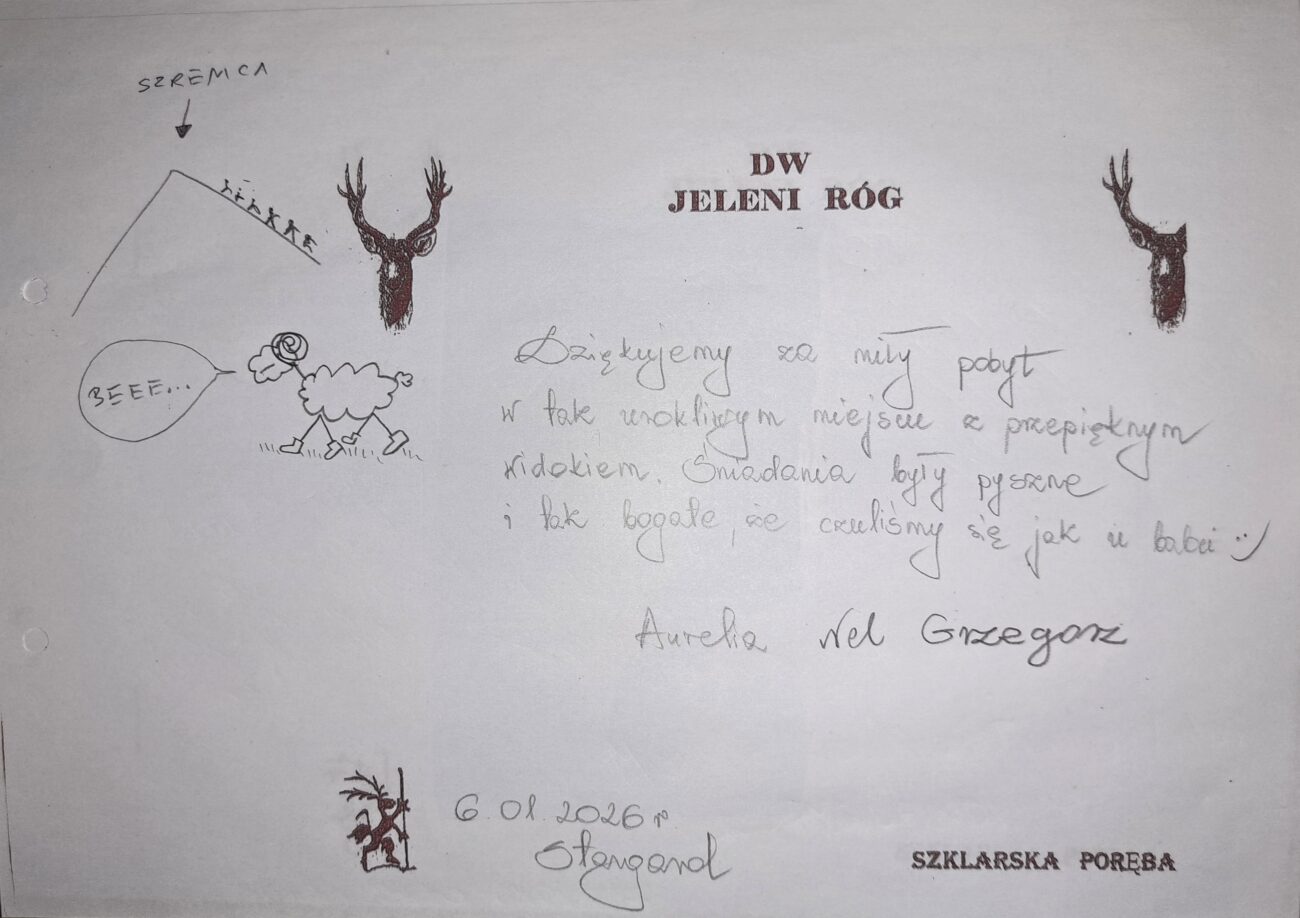 SZREMCA
DW
JELENI RÓG
BEEE...
Dziękujemy za miły pobyt
w tak urokliwym miejscu z przepięknym
widokiem. Śniadania były pyszne
i tak bogate, że czuliśmy się jak u babci :)
Aurelia Nel Grzegorz
6.01.2026 r.
Stargard
SZKLARSKA PORĘBA